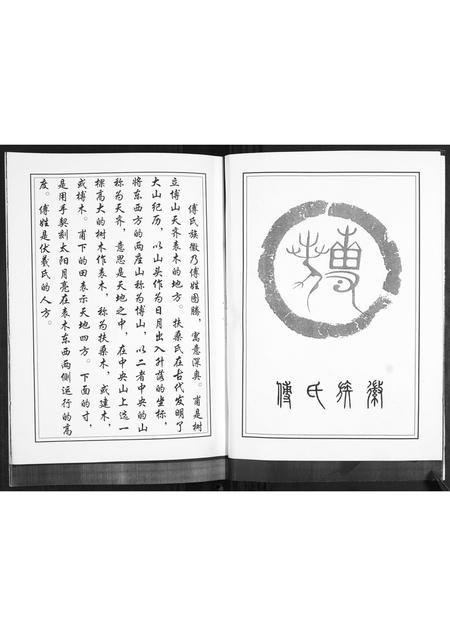 傅氏族徽乃傅姓图腾，寓意深奥。甫是树
立博山天齐表木的地方。扶桑氏在古代发明了
大山纪历，以山头作为日月出入升落的坐标，
将东西方的两座山称为博山，以二者中央的山
称为天齐，意思是天地之中，在中央山上选一
棵高大的树木作表木，称为扶桑木，或建木，
或榑木。甫下的田表示天地四方。下面的寸，
是用手契刻太阳月亮在表木东西两侧运行的高
度。傅姓是伏羲氏的人方。
傅氏族徽